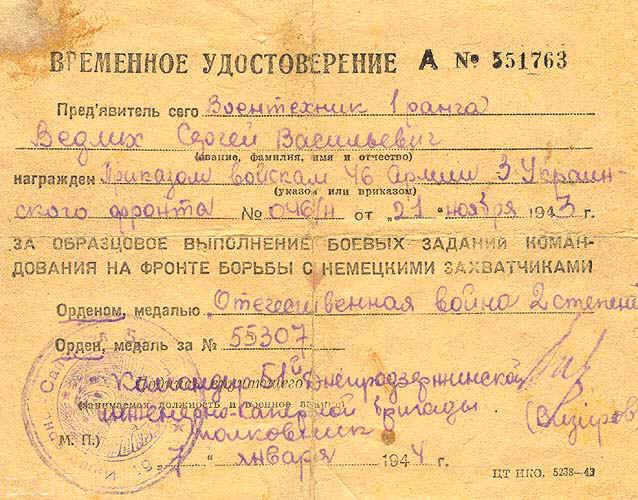 ВРЕМЕННОЕ УДОСТОВЕРЕНИЕ А № 551763
Пред'явитель сего Воентехник 1 ранга
Ведлих Сергей Васильевич
(звание, фамилия, имя и отчество)
награжден Приказом войскам 46 Армии 3 Украин-
(указом или приказом)
ского фронта № 046/н от "21" ноября 1943 г.
ЗА ОБРАЗЦОВОЕ ВЫПОЛНЕНИЕ БОЕВЫХ ЗАДАНИЙ КОМАН-
ДОВАНИЯ НА ФРОНТЕ БОРЬБЫ С НЕМЕЦКИМИ ЗАХВАТЧИКАМИ
Орденом, медалью "Отечественная война 2 степени
Орден, медаль за № 55307
Командир 51й Днепродзержинской
(занимаемая должность и военное звание)
инженерно-саперной бригады
(Визиров
М. П.)
полковник
7 " января 1944 г.
ЦТ НКО. 5238—43